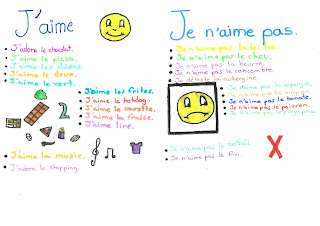 J'aime
J'adore le chocolat.
J'aime la pizza.
J'aime les chiens.
J'aime le deux.
J'aime le vert.
J'aime les frites.
J'aime le hotdog.
J'aime la carotte.
J'aime la fraise.
J'aime lire.
2
J'aime la music.
J'adore le shopping.
Je n'aime pas.
Je n'aime pas la
Je n'aime pas le chou.
Je n'aime pas le beurre.
Je n'aime pas le concombre.
Je déteste la aubergine.
Je n'aime pas le asperges.
Je n'aime pas la
Je n'aime pas la tomate.
Je n'aime pas le poivron.
Je n'aime pas le ping-pong.
Je n'aime pas le football.
Je n'aime pas le